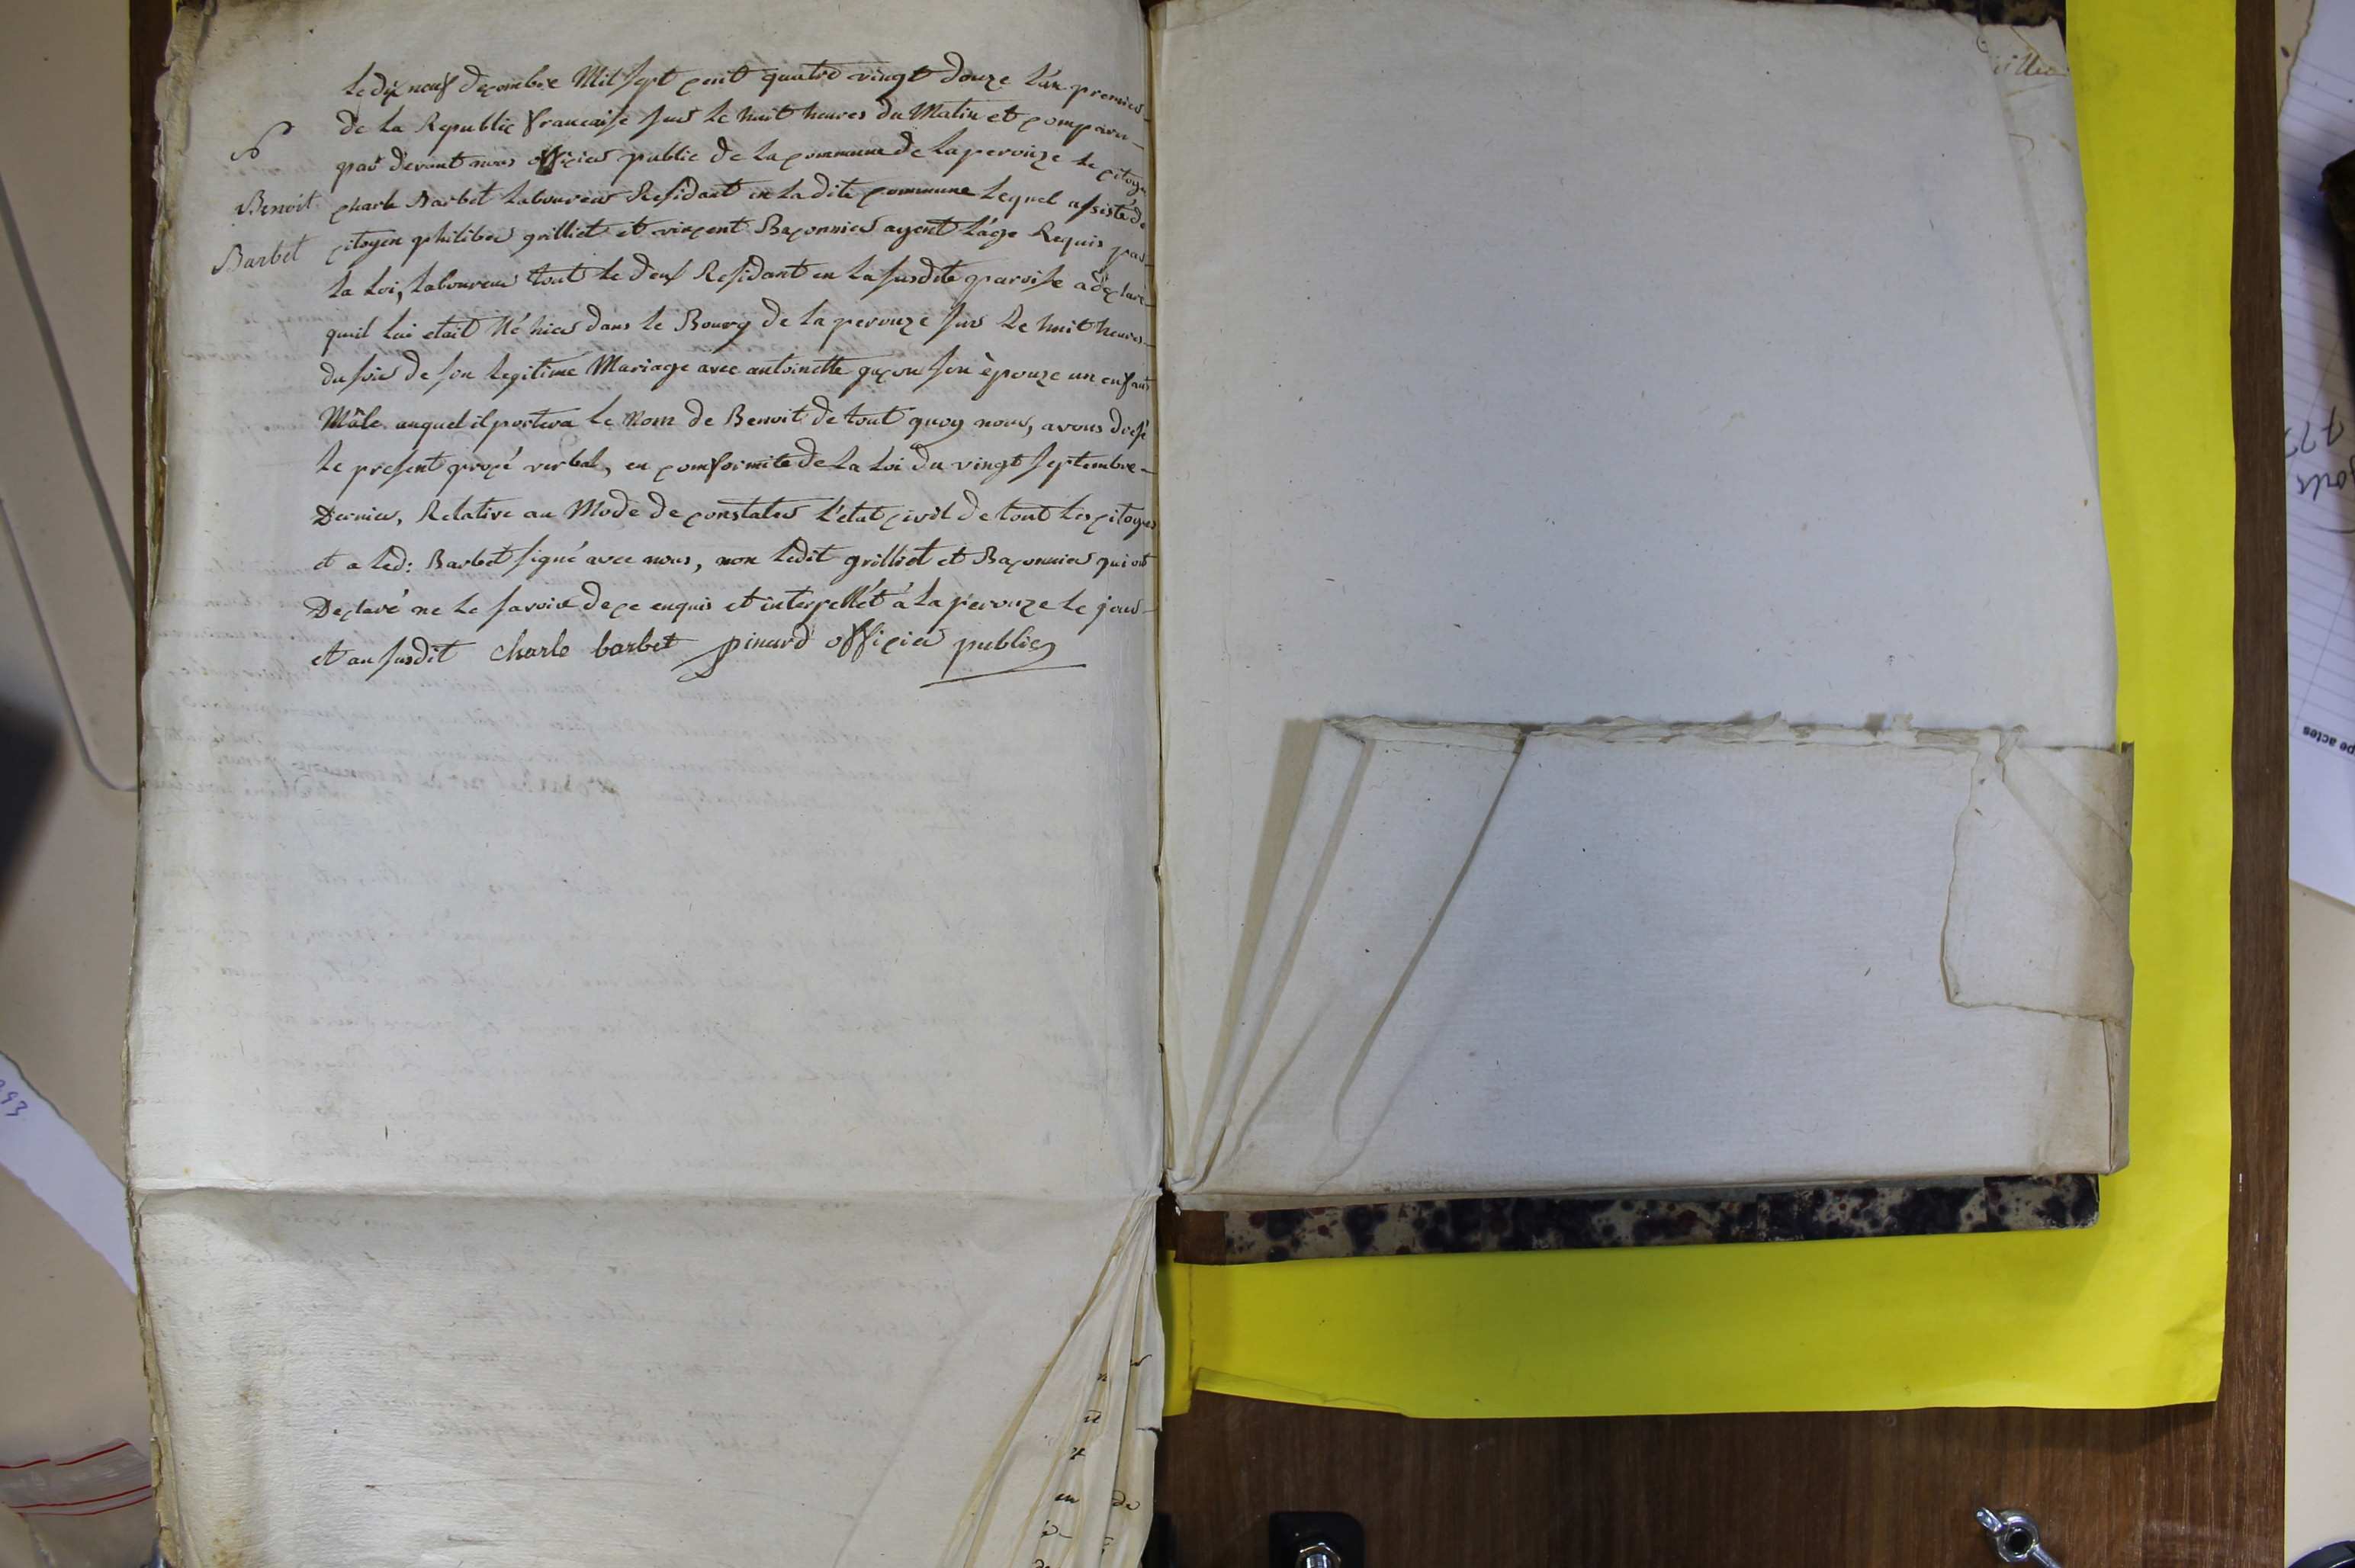 Le dix neuf decembre Mil sept cent quatre vingt douze L'an premier
de La Republic francaise sur le huit heures du Matin et comparu
par devant nous officier public de La commune de Laperouze le citoye
Benoit
Barbet
charle Barbet Laboureur Residant en La dite commune Lequel assisté de
citoyen philiber grilliet et vincent Baconnier ayent L'age Requis par
La Loi, Laboureur tout le deux Residant en La susdite paroisse a declaré
quil Lui etait Né hier dans le Bourg de La perouze sur le huit heures
du soir de son Legitime Mariage avec antoinette guçon son èpouze un enfant
Mâle auquel il portera le Nom de Benoit de tout quoy nous, avons dressé
le present procé verbal, en comformite de La Loi du vingt septembre
Dernier, Relative au Mode de constater L'etat civil de tout Les citoyes
et a Led: Barbet signé avec nous, non Ledit grilliet et Baconnier qui ont
Declaré ne le savoir de ce enquis et interpellét á La perouze le jour
et an susdit charle barbet pinard officier public